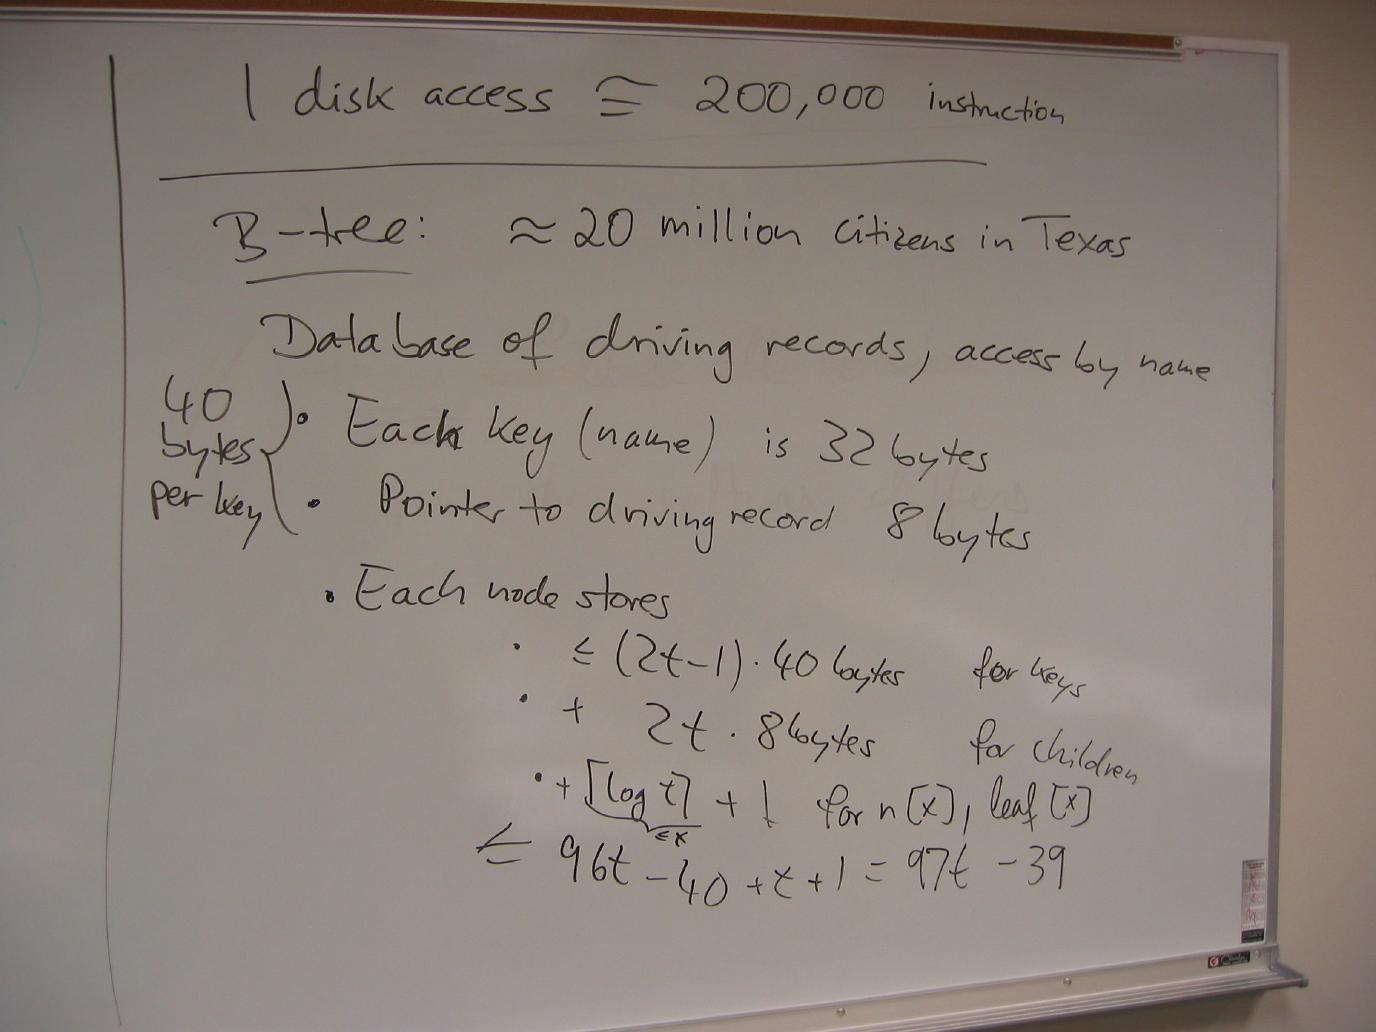 1 disk access ≅ 200,000 instruction
B-tree: ≈ 20 million citizens in Texas
Database of driving records, access by name
40 bytes per key
• Each key (name) is 32 bytes
• Pointer to driving record 8 bytes
• Each node stores
• ≤ (2t-1) · 40 bytes for keys
• + 2t · 8 bytes for children
• + ⌈log t⌉ + 1 for n[x], leaf[x]
≤ 96t - 40 + t + 1 = 97t - 39